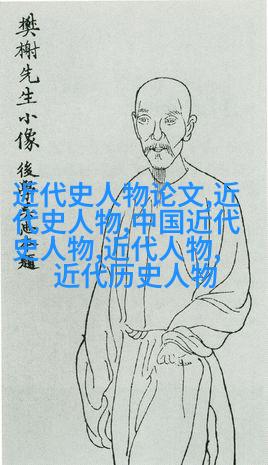 樊榭先生小像
後學 題
近代史人物论文,近
代史人物,中国近代
史人物,近代人物,
近代历史人物